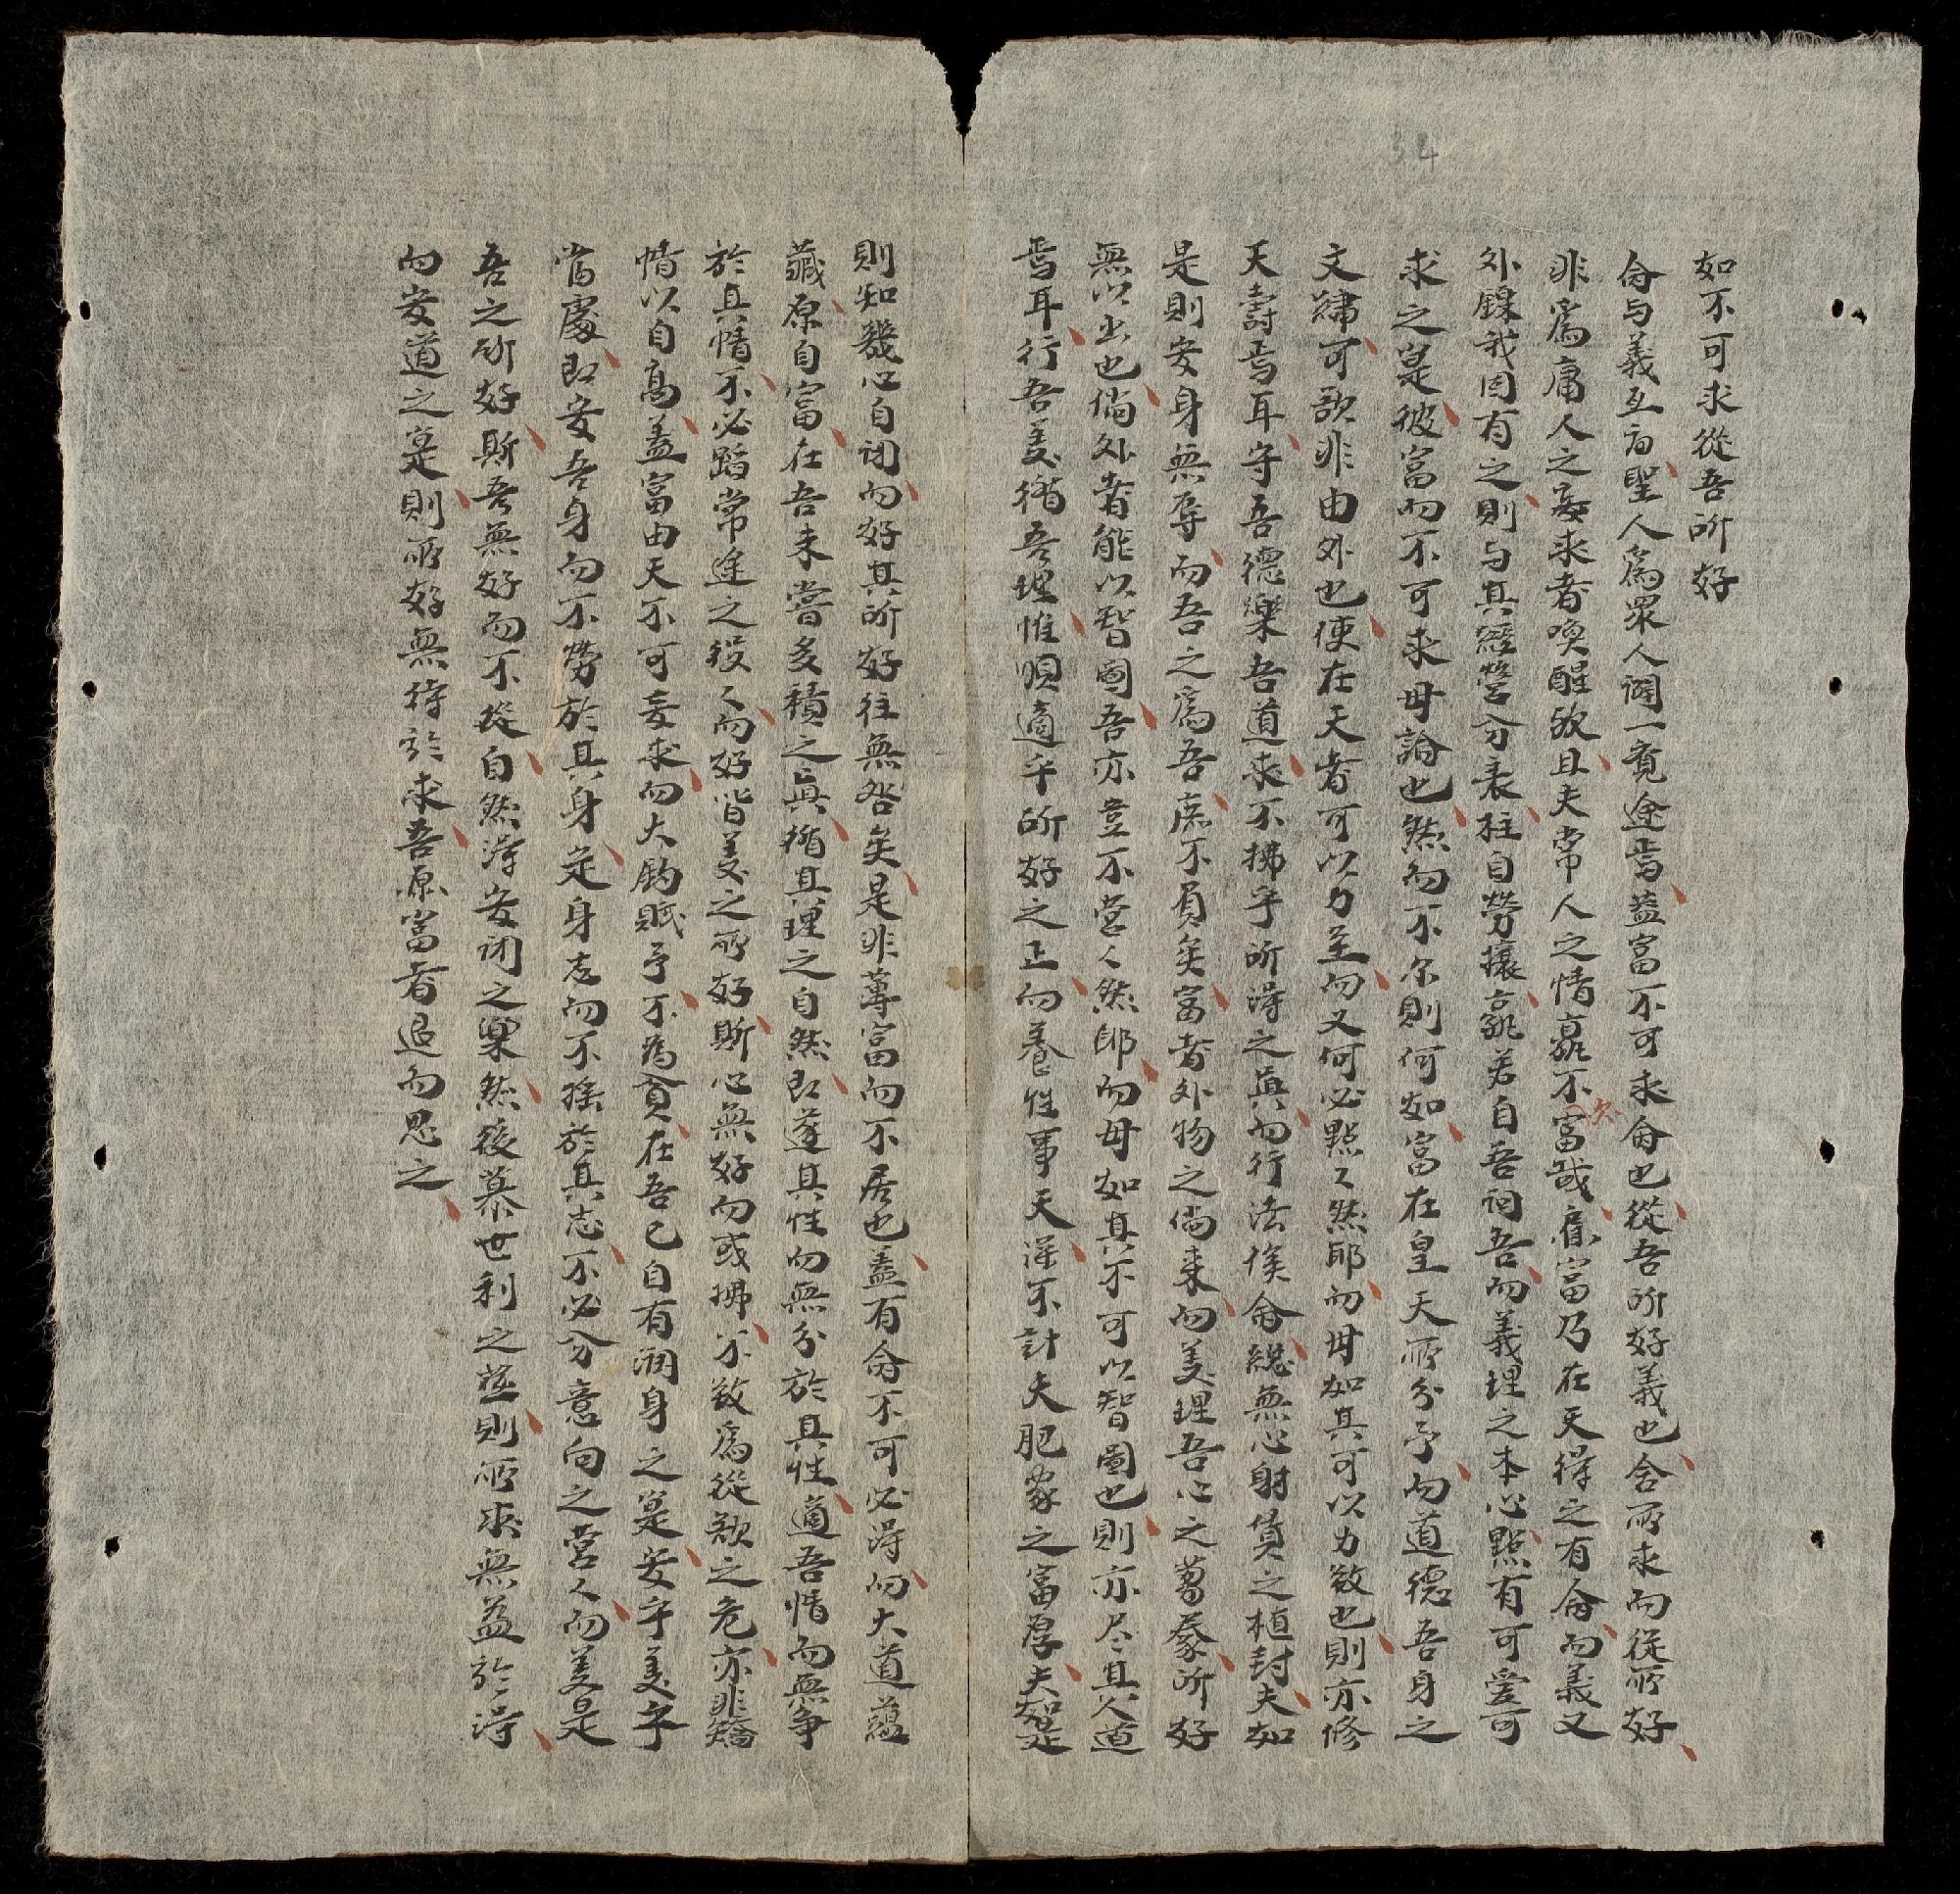 34
如不可求從吾所好
命与義互言聖人爲衆人闢一竟途焉盖富不可求命也從吾所好義也舍所求而從所好
非爲庸人之妄求者喚醒歟且夫常人之情孰不富哉雇富乃在天得之有命而義又
外鑠我固有之則与其經營分表往自勞攘孰若自吾祠吾而義理之本心點有可愛可
求之寔彼富而不可求毋論也然而不尔則何如富在皇天所分予而道德吾身之
文繡可歌非由外也使在天者可以力至而又何必點〻然耶而毋如其可以力致也則亦修
天壽焉耳守吾德樂吾道求不拂乎所得之真而行法俟命總無心射貨之植封夫如
是則安身無辱而吾之爲吾庶不負矣富者外物之倘來而美理吾心之蒭豢所好
無以出也倘外者能以智圖吾亦豈不營〻然耶而毋如其不可以智圖也則亦尽其人道
焉耳行吾美循吾理惟順適乎所好之正而養性事天洋不計夫肥家之富厚夫如是
則知幾心自閉而好其所好往無咎矣是非薄富而不居也盖有命不可必得而大道蘊
藏原自富在吾未嘗多積之真循其理之自然即遂其性而無分於其性適吾情而無争
於其情不必蹈常途之役〻而好皆美之所好斯心無好而或拂不致爲從欲之危亦非矯
情以自高盖富由天不可妄求而大鈞賦予不為貪在吾已自有潤身之寔安乎美乎
當處即安吾身而不勞於其身定身志而不搖於其志不必分意向之营〻而美是
吾之所好斯吾無好而不從自然得安閉之樂然後慕世利之茲則所求無益於得
而安道之寔則所好無待於求吾原富者退而思之